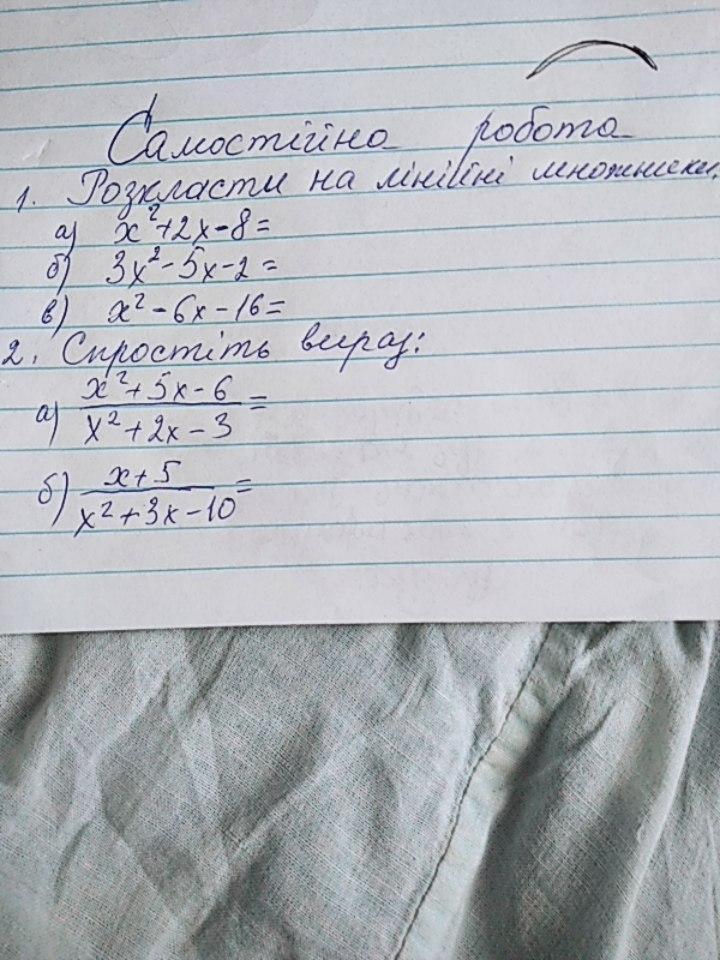 Самостійна робота
1. Розкласти на лінійні множники.
а) x²+2x-8=
б) 3x²-5x-2=
в) x²-6x-16=
2. Спростіть вираз:
а) x²+5x-6
x²+2x-3 =
б) x+5
x²+3x-10 =